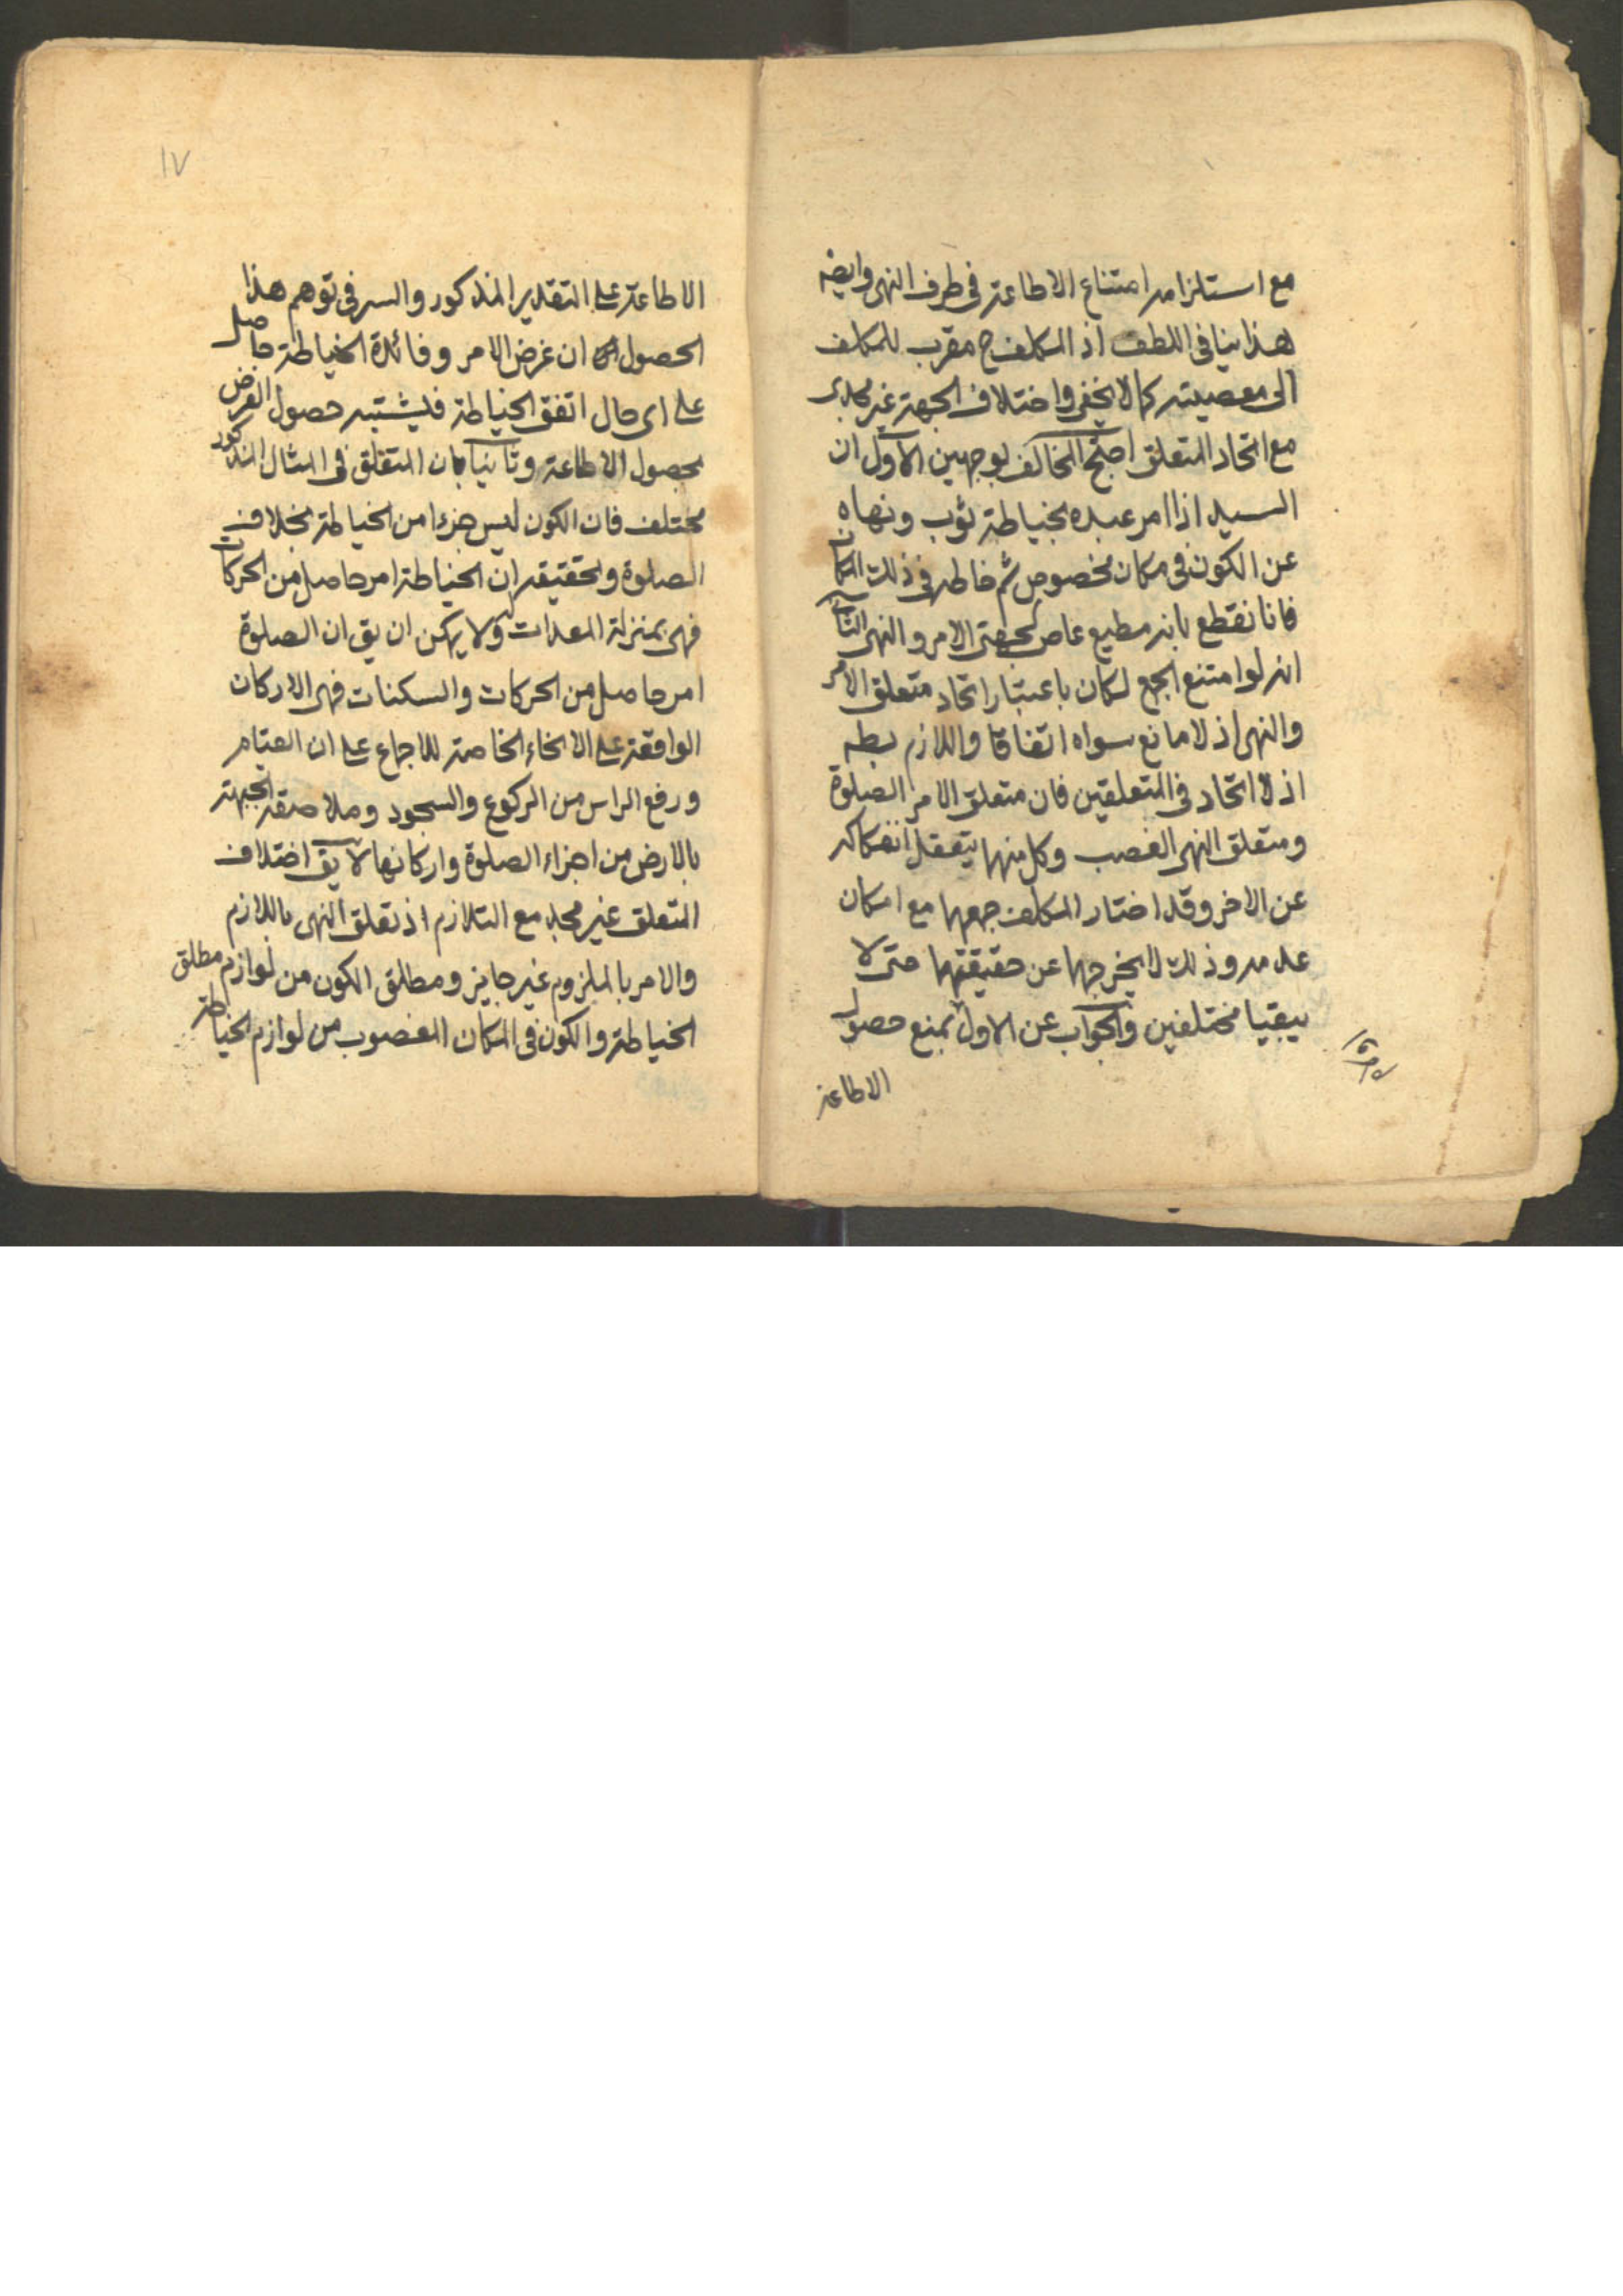 مع استلزامه امتناع الاطاعة فى طرف النهى وايضه
هذا ينافى اللطف اذ المكلف ح مقرب للمكلف
الى معصيته كما لا يخفى واختلاف الجهة غير مجدى
مع اتحاد المتعلق احتج المخالف بوجهين الاول ان
السيد اذا امر عبده بخياطة ثوب ونهاه
عن الكون فى مكان مخصوص ثم خاطه فى ذلك المكان
فانا نقطع بانه مطيع عاص لجهتى الامر والنهى الثانى
انه لو امتنع الجمع لكان باعتبار اتحاد متعلق الامر
والنهى اذ لا مانع سواه اتفاقا واللازم بطه
اذ لا اتحاد فى المتعلقين فان متعلق الامر الصلوة
ومتعلق النهى الغصب وكل منهما يتعقل انفكاكه
عن الاخر وقد اختار المكلف جمعهما مع امكان
عدمه وذلك لا يخرجهما عن حقيقتهما حتى لا
يبقيا مختلفين والجواب عن الاول بمنع حصول
الاطاعة
١٧
الاطاعة على التقدير المذكور والسر فى توهم هذا
الحصول ان غرض الامر وفائدة الخياطة حاصل
على اى حال اتفق الخياطة فيشتبه حصول الغرض
بحصول الاطاعة وثانيا بان المتعلق فى المثال المذكور
مختلف فان الكون ليس جزءا من الخياطة بخلاف
الصلوة وتحقيقه ان الخياطة امر حاصل من الحركات
فهى بمنزلة المعدات ولا يمكن ان يق ان الصلوة
امر حاصل من الحركات والسكنات فهى الاركان
الواقعة على الانحاء الخاصة للاجماع على ان القيام
ورفع الراس من الركوع والسجود وملاصقة الجبهة
بالارض من اجزاء الصلوة واركانها لا يق اختلاف
المتعلق غير مجد مع التلازم اذ تعلق النهى باللازم
والامر بالملزوم غير جايز ومطلق الكون من لوازم مطلق
الخياطة والكون فى المكان المغصوب من لوازم الخياطة